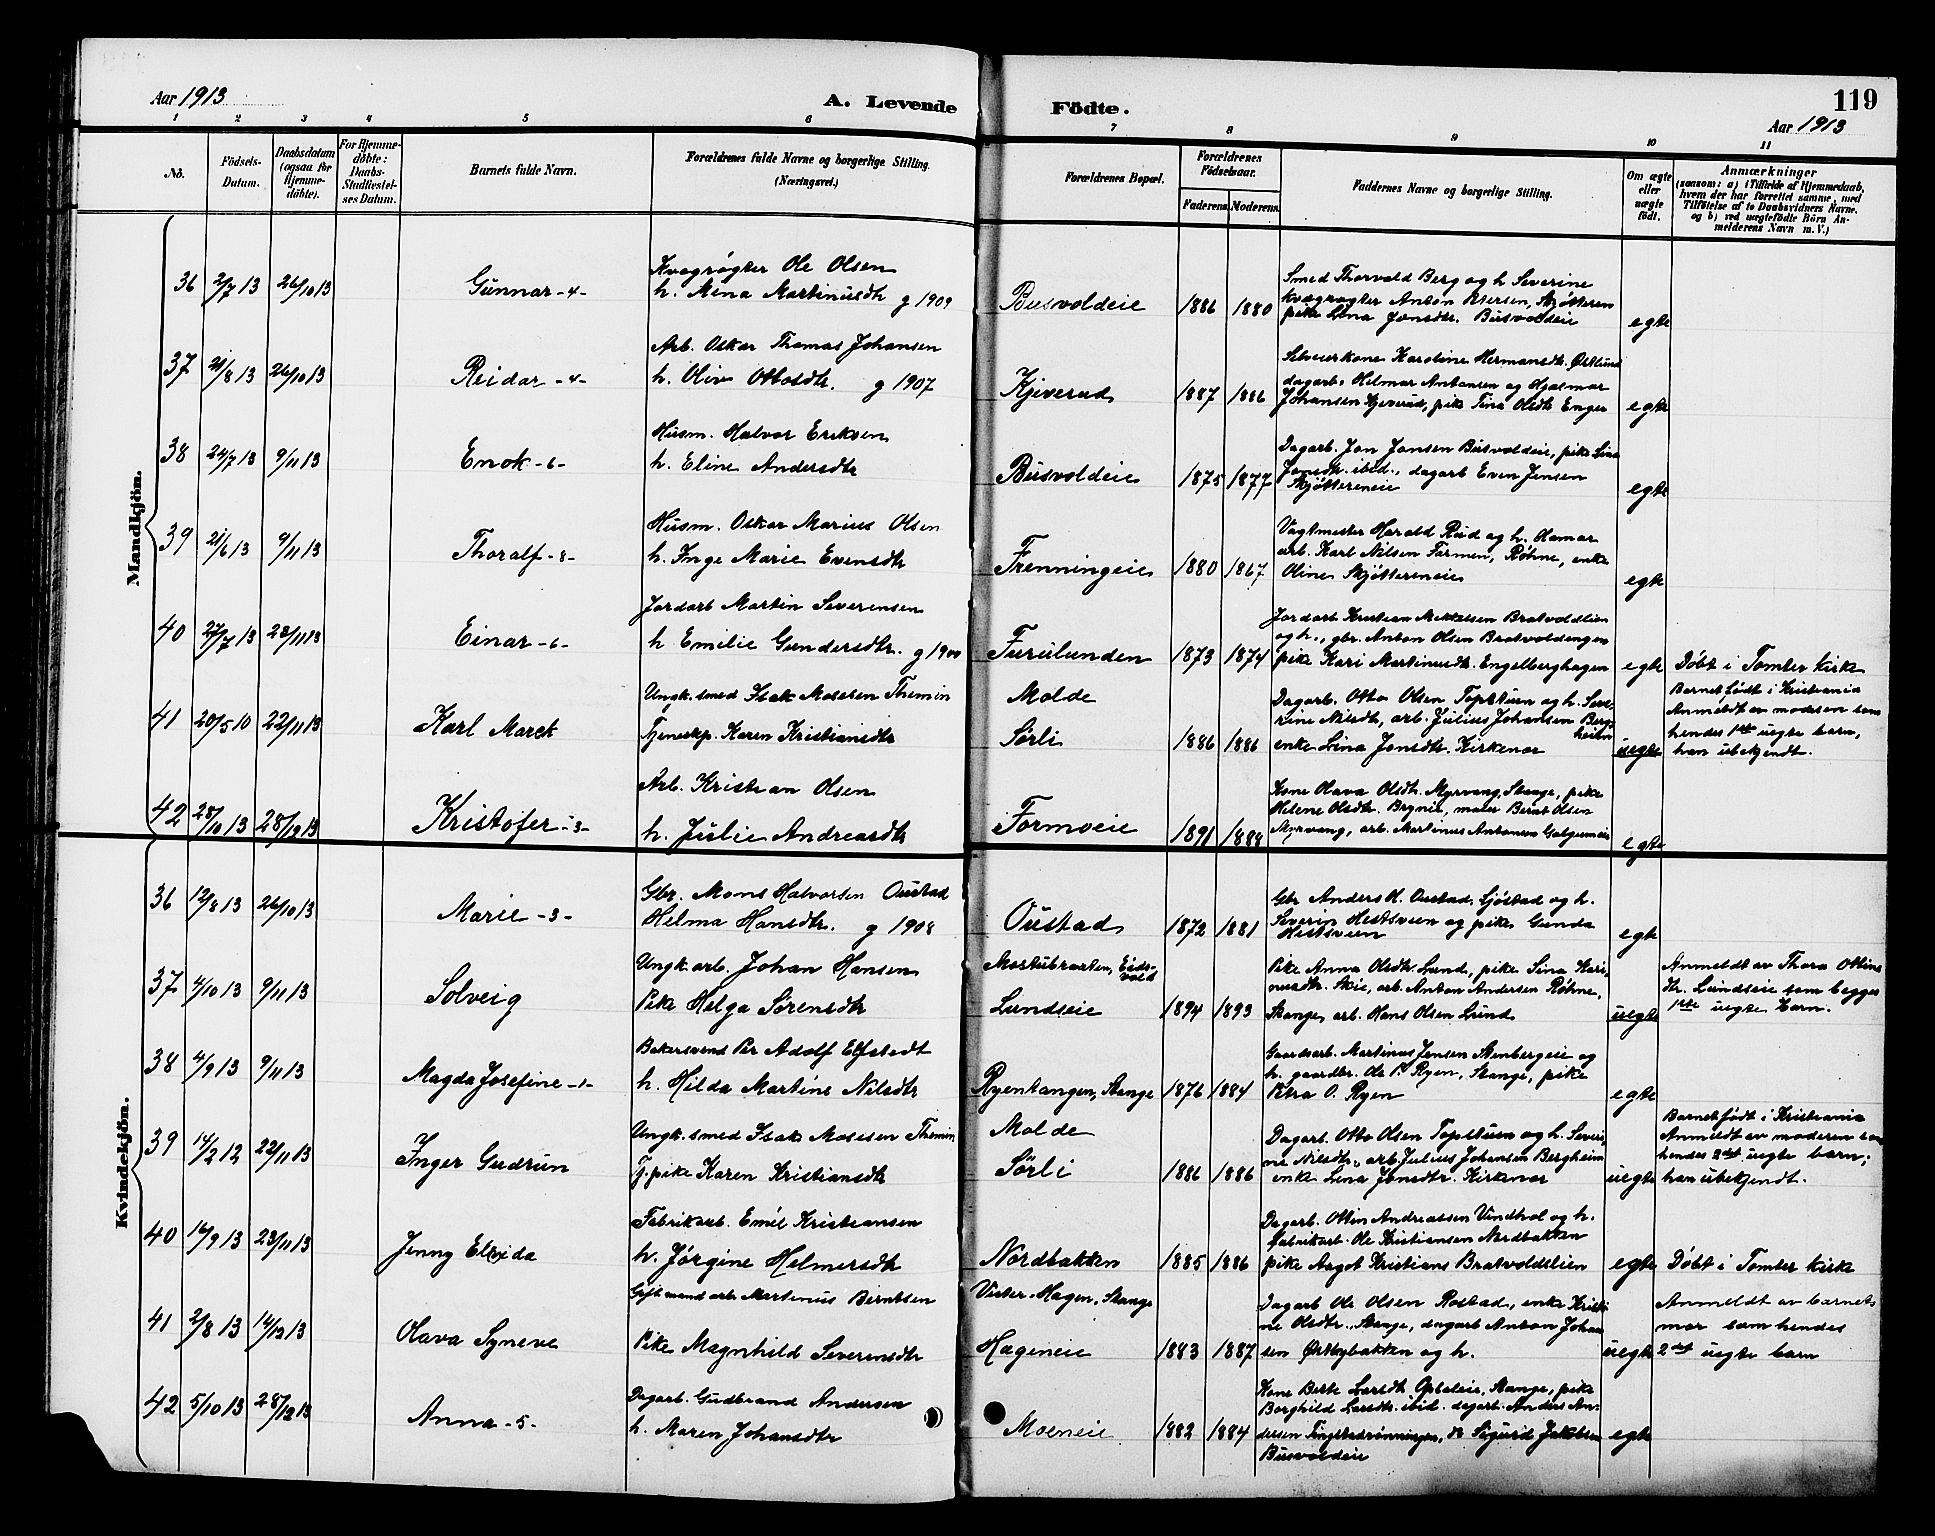 Aar 1913
A. Levende Födte.
119
Aar 1913
1 2 3 4 5 6 7 8 9 10 11
No.
Födsels-Datum.
Daabsdatum (ogsaa for Hjemme-döbte).
For Hjemme-döbte: Daabs-Stadfæstel-ses Datum.
Barnets fulde Navn.
Forældrenes fulde Navne og borgerlige Stilling. (Næringsvei.)
Forældrenes Bopæl.
Forældrenes Födselsaar.
Faderens. Moderens.
Faddernes Navne og borgerlige Stilling.
Om ægte eller uægte födt.
Anmærkninger
(saasom: a) i Tilfælde af Hjemmedaab, hvem der har forrettet samme, med Tilföielse af to Daabsvidners Navne, og b) ved uægtefödte Börn An-melderens Navn m. V.)
Mandkjön.
36 2/7 13 26/10 13 Gunnar -4-
Kvægrøgter Ole Olsen
h. Mina Martinusdtr g 1909
Busvoldeie 1886 1880
Smed Thorvald Berg og h. Severine
kvægrøgter Anton Petersen, Skjøtteren
pike Lina Jonsdtr. Busvoldeie
egte
37 21/8 13 26/10 13 Reidar -4-
Arb. Oskar Thomas Johansen
h. Oliv Ottosdtr. g 1907
Kjeverud 1887 1886
Selveierkone Karoline Hermansdtr. Østlund
dagarb. Helmar Antonsen og Hjalmar
Johansen Kjeverud, pike Tina Olsdtr Enger
egte
38 24/7 13 9/11 13 Enok -6-
Husm. Halvor Eriksen
h. Eline Andersdtr
Busvoldeie 1875 1877
Dagarb. Jon Jonsen Busvoldeie, pike Lina
Jonsdtr. ibid., dagarb Even Jensen
Skjøttereneie
egte
39 21/6 13 9/11 13 Thoralf -8-
Husm. Oskar Marius Olsen
h. Inge Marie Evensdtr
Frenningeie 1880 1867
Vagtmester Harald Rud og h. Hamar
arb. Karl Nilsen Farmen, Røhne, enke
Oline Skjøttereneie
egte
40 27/7 13 23/11 13 Einar -6-
Jordarb Martin Severensen
h Emilie Gundersdtr. g 1900
Furulunden 1873 1874
Jordarb Kristian Mikkelsen Bratvoldlien
og h., gbr. Anton Olsen Bratvoldengen
pike Kari Martinusdtr. Engelberghagen
egte
Döbt i Tomter Kirke
41 20/5 10 22/11 13 Karl Marck
Ungk. smed Isak Mosesen Themin
Tjenestep. Karen Kristiansdtr
Molde
Sørli 1886 1886
Dagarb. Otto Olsen Toptstuen og h. Seve-
rine Nilsdtr, arb. Julius Johansen Berg-
heim
enke Lina Jonsdtr. Kirkenor
uegte
Barnet födt i Kristiania
Anmeldt av moderen som
hendes 1ste uegte barn,
han ubekjendt.
42 28/10 13 28/12 13 Kristofer -3-
Arb. Kristian Olsen
h. Julie Andreasdtr
Formoeie 1891 1888
Kone Olava Olsdtr. Myrvang, Stange, pike
Helene Olsdtr. Brynie, maler Bernt Olsen
Myrvang, arb. Martinus Antonsen
egte
Kvindekjön.
36 12/8 13 26/10 13 Marie -3-
Gbr. Mons Halvorsen Oustad
Helma Hansdtr. g 1908
Oustad 1872 1881
Gbr Anders H. Oustad, Sjöstad og h.
Severin Hestsveen og pike Gunda
Hestsveen
egte
37 4/10 13 9/11 13 Solveig
Ungk. arb. Johan Hansen
Pike Helga Sørensdtr
Eids-
vold
Lundseie 1894 1893
Pike Anna Olsdtr Lund, pike Sina Kari-
nusdtr. Skie, arb. Anton Andersen Røhne,
Stange, arb. Hans Olsen Lund
uegte
Anmeldt av Thora Ottine
dtr. Lundseie som begges
1ste uegte barn.
38 4/9 13 9/11 13 Magda Josefine -1-
Bakersvend Per Adolf Elfstedt
h. Hilda Martine Nilsdtr
Ryentangen, Stange 1876 1884
Gaardsarb. Martinus Jensen Stenbergeie og
h. gaardbr. Ole P. Ryen, Stange, pike
Petra O. Ryen
egte
39 14/2 12 22/11 13 Inger Gudrun
Ungk. smed Isak Mosesen Themin
Tj. pike Karen Kristiansdtr
Molde
Sørli 1886 1886
Dagarb. Otto Olsen Toptstuen og h. Severi-
ne Nilsdtr., arb. Julius Johansen Bergheim
enke Lina Jonsdtr. Kirkenor
uegte
Barnet födt i Kristiania
Anmeldt av moderen som
hendes 2det uegte barn;
han ubekjendt.
40 16/9 13 23/11 13 Jenny Elvida
Fabrikarb. Emil Kristiansen
h. Jørgine Helmersdtr
Nordbakken 1885 1886
Dagarb. Ottin Andreassen Vindhol og h.
fabrikarb. Ole Kristiansen Nordbakken
pike Aagot Kristians Bratvoldslien
egte
Döbt i Tomter Kirke
41 2/8 13 14/12 13 Olava Syneve
Gift mand arb Martinus Berntsen
Pike Magnhild Severensdtr
Vister-Hagen, Stange
Hageneie 1883 1887
Dagarb Ole Olsen Rostad, enke Kristi-
ne Olsdtr., Stange, dagarb Anton Johan
sen Østbybakken og h.
uegte
Anmeldt av barnets
mor som hendes
2det uegte barn
42 5/10 13 28/12 13 Anna -5-
Dagarb. Gudbrand Andersen
h. Maren Johansdtr
Moeneie 1882 1884
Kone Berte Larsdtr. Opsaleie, Stange, pike
Borghild Larsdtr. ibid. dagarb. Anders An-
dersen Tingstadrønningen, do Sigurd Jakobsen
Busvoldeie
egte